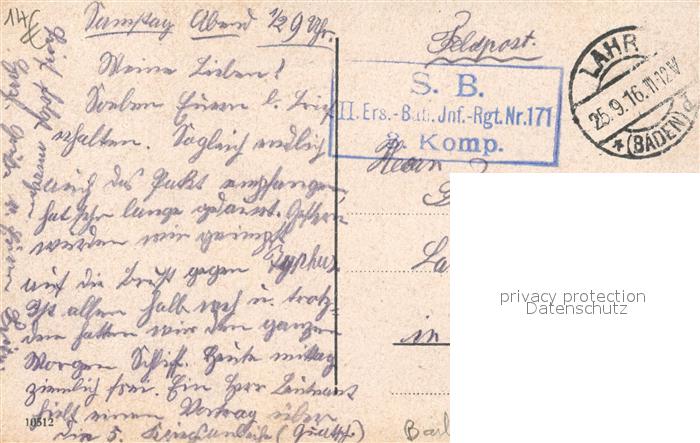 14€
Samstag Abend 1/2 9 Uhr.
Meine Lieben!
Soeben Euern l. Brief
erhalten. Sogleich endlich
auch das Paket empfangen,
hat sehr lange gedauert. Gestern
wurden wir geimpft
auf die Brust gegen Typhus
Ist allen halb weh u. trotz-
dem hatten wir den ganzen
Morgen Schieß. Heute mittag
ziemlich frei. Ein Herr Leutnant
hielt einen Vortrag über
die 5. Kriegsanleihe (Quatsch)
Brief folgt morgen
Feldpost.
S. B.
II. Ers.-Batl. Jnf.-Rgt. Nr. 171
3. Komp.
LAHR
25.9.16.11-12V
* (BADEN)
Herrn
in
10512
privacy protection
Datenschutz